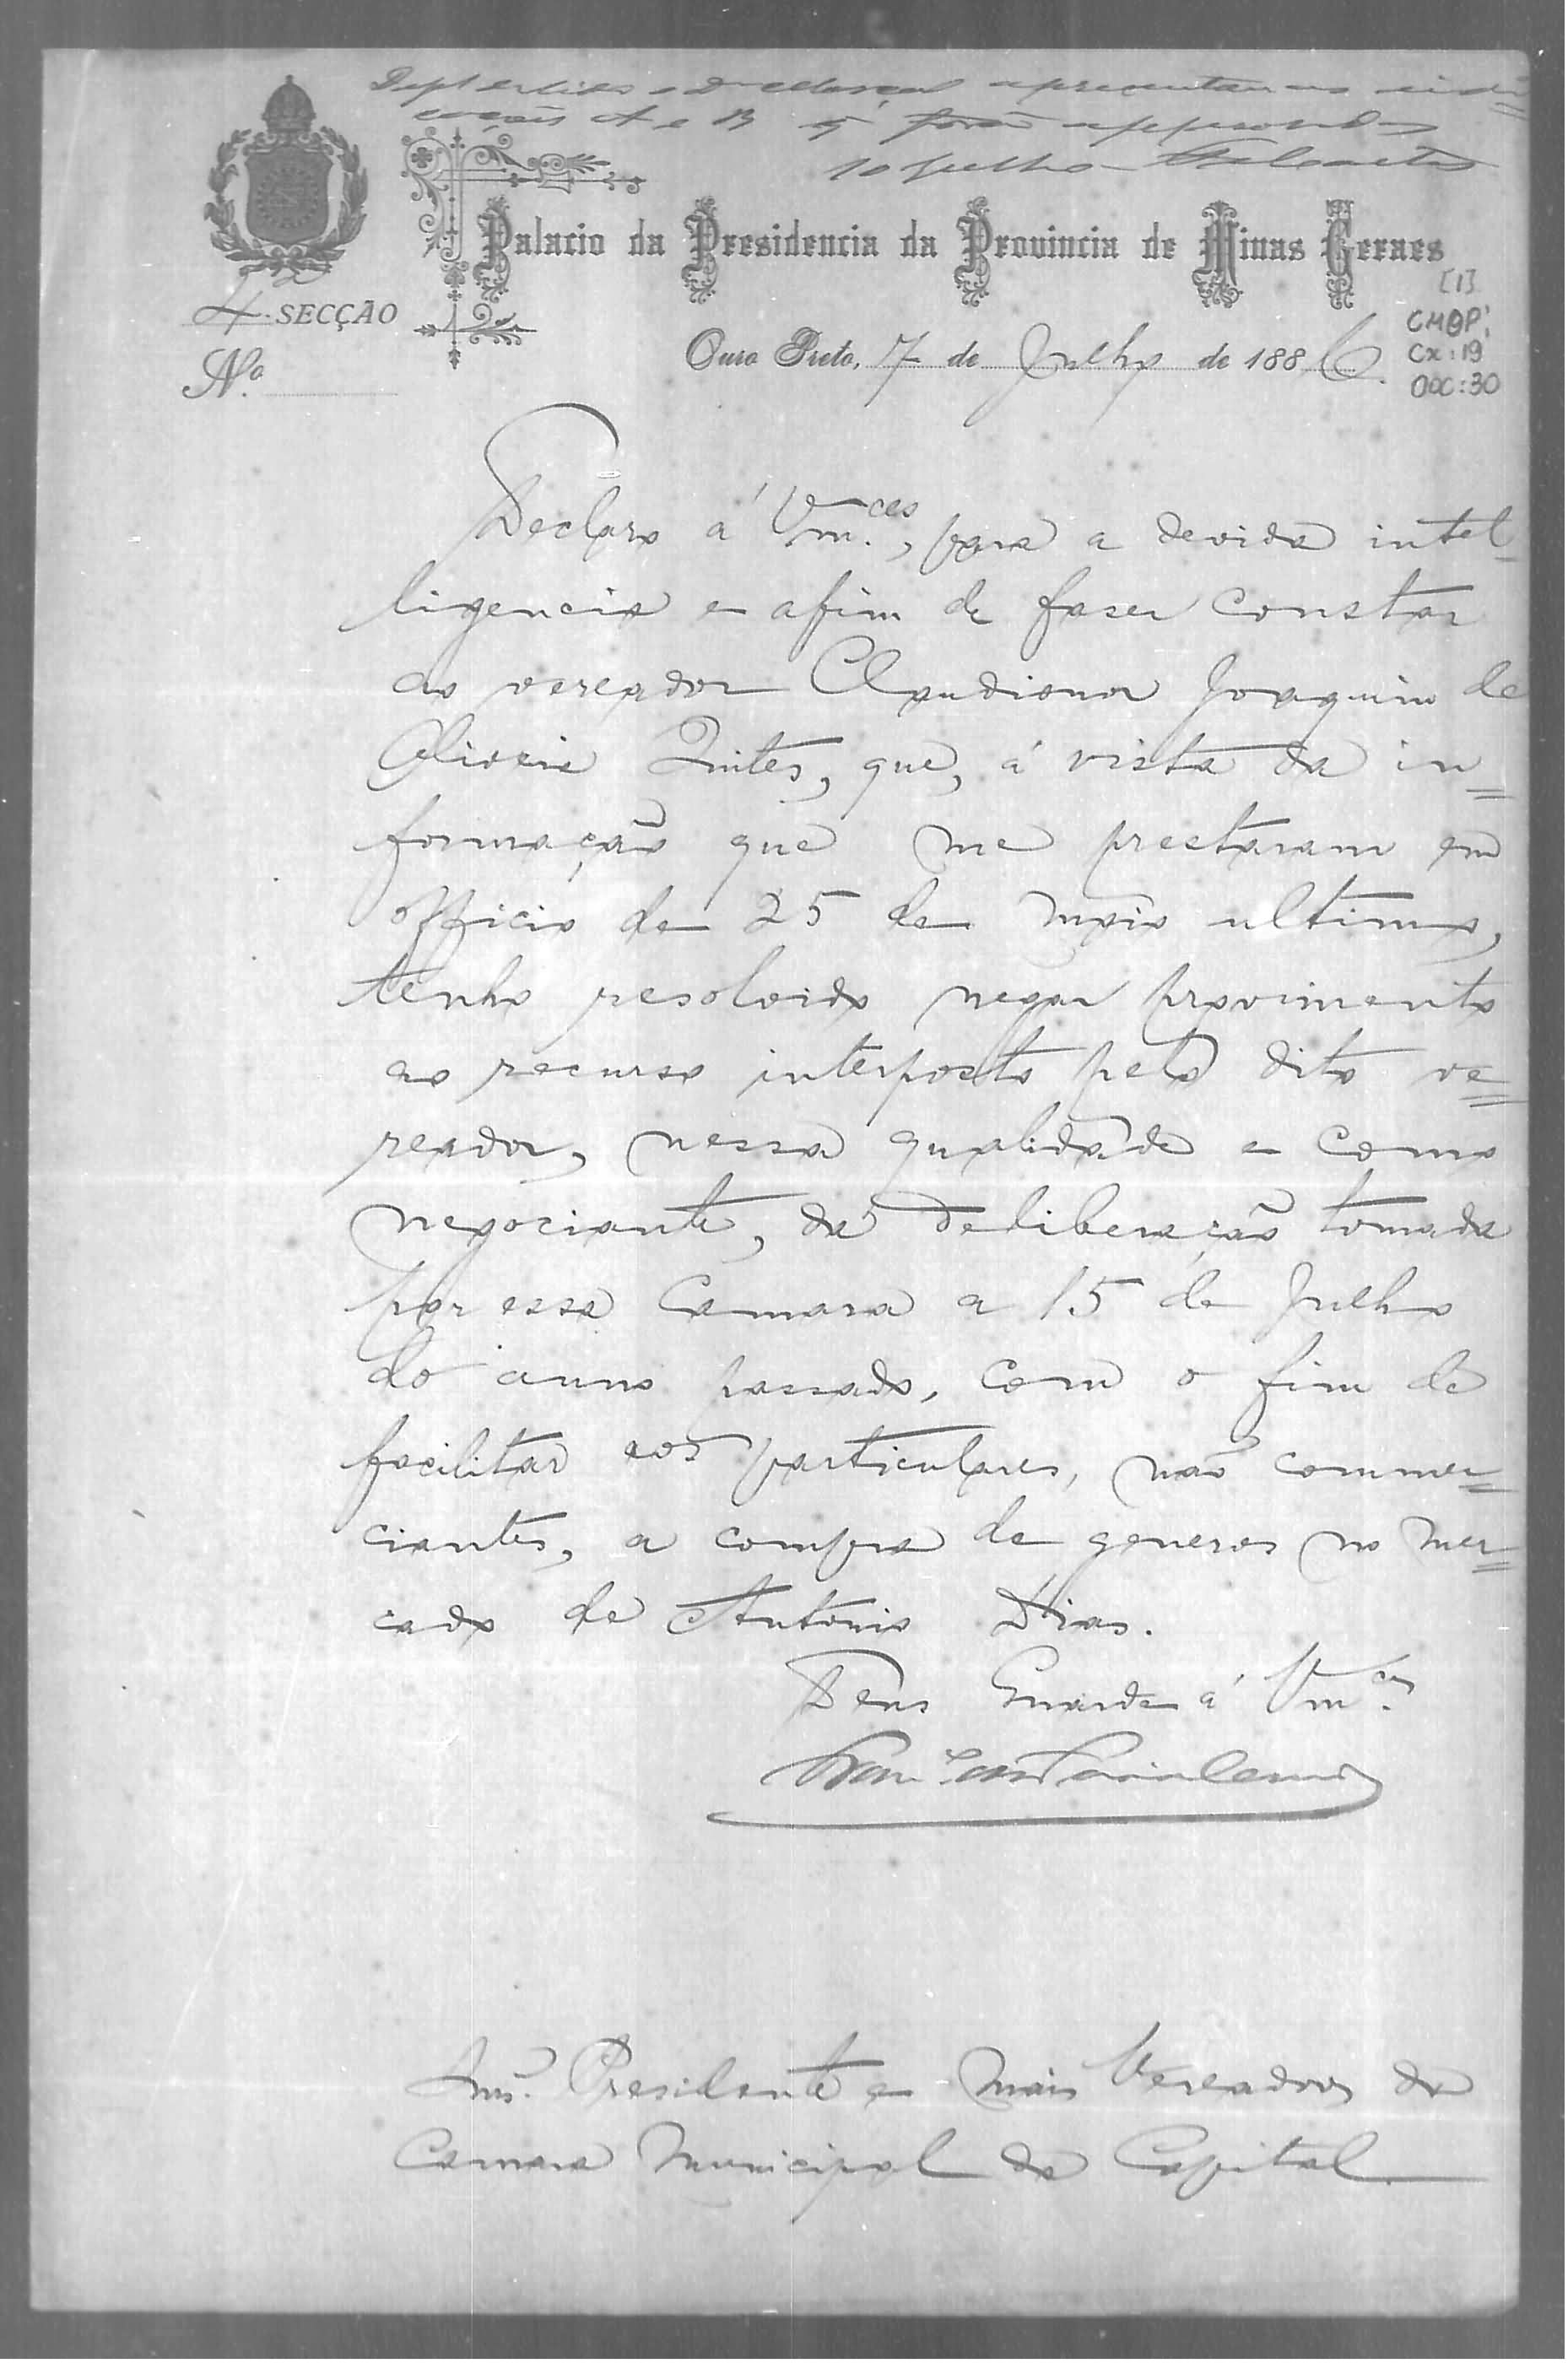 apresentaram as indi=
cações A e B q forão approvadas
10 Julho
Palacio da Presidencia da Provincia de Minas Geraes
[1]
4.ª SECÇÃO
CMOP
Cx: 19
DOC: 30
Nº
Ouro Preto, 7 de Julho de 1886.
Declaro á Vm.ces, para a devida intel-
ligencia e afim de faser constar
ao vereador Claudionor Joaquim de
Oliveira Quites, que, á vista da in=
formação que me prestaram em
officio de 25 de Maio ultimo,
tenho resolvido negar provimento
ao recurso interposto pelo dito ve=
reador, nessa qualidade e como
negociante, da deliberação tomada
por essa Camara a 15 de Julho
do anno passado, com o fim de
facilitar aos particulares, não commer=
ciantes, a compra de generos no mer=
cado de Antonio Dias.
Deus Guarde á Vm.ces
Snrs. Presidente e mais Vereadores da
Camara Municipal da Capital